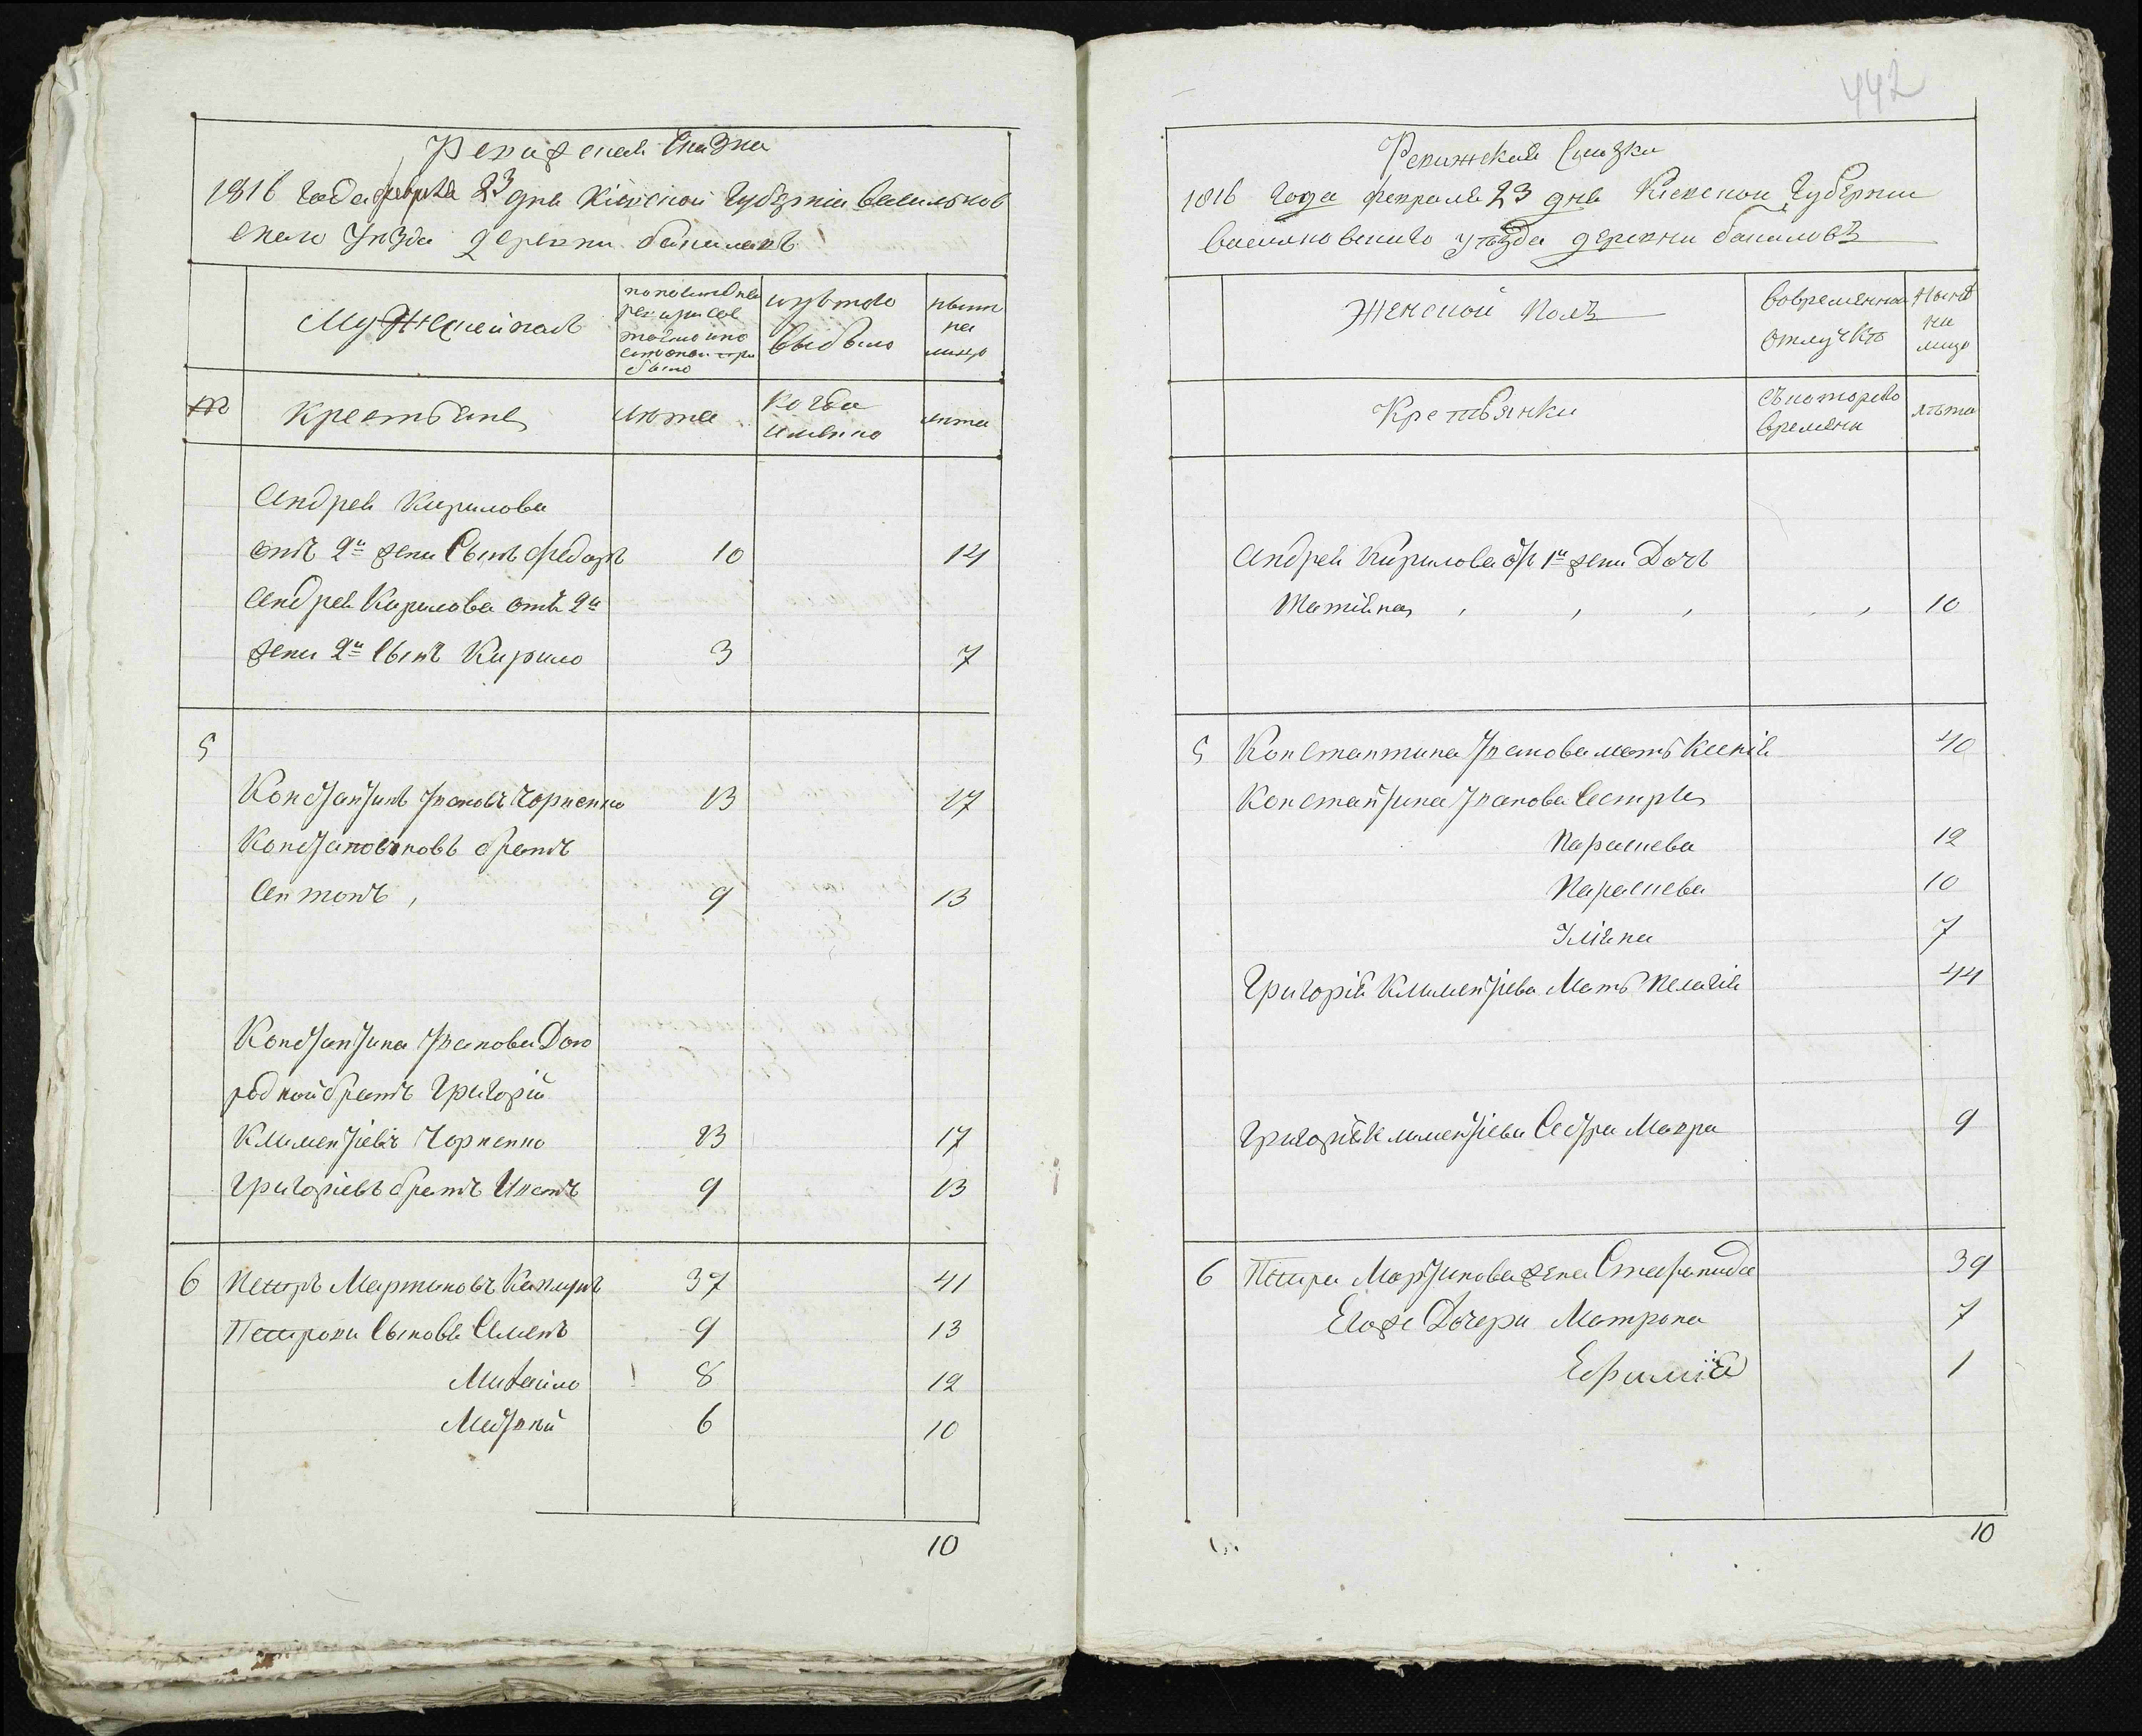 442
Ревижская Сказка
1816 года февраля 23 дня Кіевской Губерніи Васильков
скаго Уезда деревни
Мужеской полъ
по последней
ревизіи
изътого
выбыло
ныне
на
лицо
№
Крестьяне
лета
Когда
именно
лета
Андрея Кирилова
отъ 2й жены Сынъ Федоръ 10 14
Андрея Кирилова отъ 2й
жены 2й Сынъ Кирило 3 7
5
Константинъ Ивановъ Чорненко 13 17
братъ
Антонъ , 9 13
Константина Иванова Двою
родной братъ Григорій
Климентіевъ Чорненко 13 17
Григоріевъ братъ Игнатъ 9 13
6 Петръ Мартиновъ 37 41
Петрови Сынове Семенъ 9 13
Михайло 8 12
Матвей 6 10
10
Ревижская Сказка
1816 года февраля 23 дня Кіевской Губерніи
Васильковскаго уѣзда деревни
Женской Полъ
Вовременной
отлучкѣ
Нынѣ
на
лицо
Крестьянки
Съкотораго
времени
лѣта
Андрея Кирилова отъ 1й жены Дочъ
Татіяна , , , , , 10
5 Константина Иванова мать Ксенія 40
Константина Иванова Сестры
Параскева 12
Параскева 10
Уліяна 7
Григорія Климентіева Мать Пелагія 44
Григорія Климентіева Сестра Мавра 9
6 Петра Мартинова жена Степанида 39
Егоже Дочери Матрона 7
Ефимія 1
10